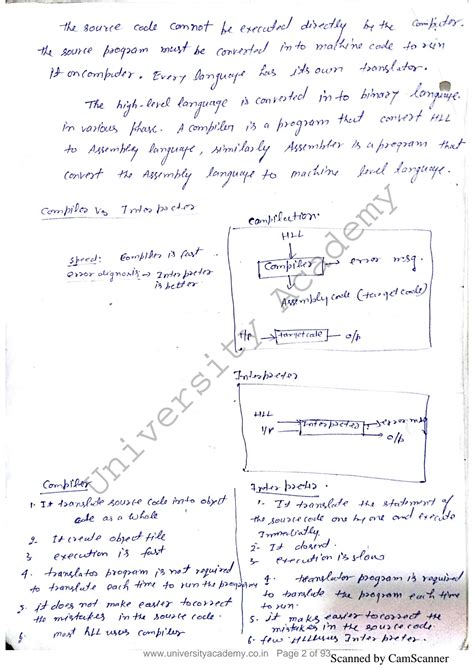 The source code cannot be executed directly by the computer.
The source program must be converted into machine code to run
it on computer. Every language has its own translator.
The high-level language is converted into binary language
in various phase. A compiler is a program that convert HLL
to Assembly language, similarly Assembler is a program that
convert the Assembly language to machine level language.
Compiler Vs Interpreter
speed: Compiler is fast
error diagnosis → Interpreter
is better
Compilation:
HLL
Compiler → error msg.
Assembly code (target code)
I/P → target code → O/P
Interpreter
HLL
I/P
Interpreter → error msg
O/P
University Academy
Compiler
1. It translate source code into object
code as a whole
2. It create object file
3. execution is fast
4. translator program is not required
to translate each time to run the program
5. it does not make easier to correct
the mistakes in the source code.
6. most HLL uses compiler
Interpreter
1. It translate the statement of
the source code one by one and execute
Immediatly.
2. It doesnt.
3. execution is slow
4. translator program is required
to translate the program each time
to run.
5. it makes easier to correct the
mistakes in the source code.
6. few HLL uses Interpreter.
www.universityacademy.co.in Page 2 of 93
Scanned by CamScanner